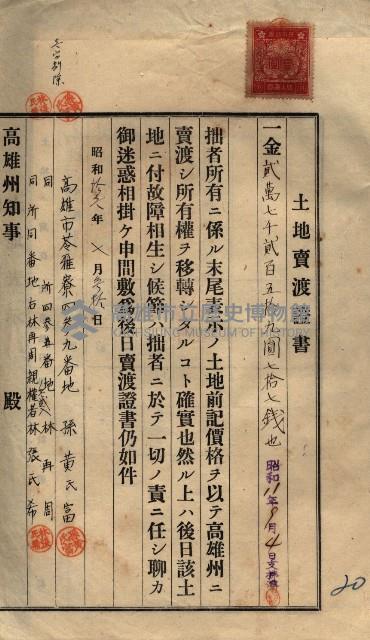 土地賣渡證書
一金貳萬七千貳百五拾九圓七拾七錢也
昭和11年9月4日支拂濟
拙者所有ニ係ル末尾表示ノ土地前記價格ヲ以テ高雄州ニ
賣渡シ所有權ヲ移轉シタルコト確實也然ル上ハ後日該土
地ニ付故障相生シ候節ハ拙者ニ於テ一切ノ責ニ任シ聊カ
御迷惑相掛ケ申間敷爲後日賣渡證書仍如件
昭和拾壹年 月參拾日
高雄市苓雅寮四參九番地 孫黃氏富
同 所四參五番地 林再周
同所同番地右林再周親權者林張氏希
高雄州知事 殿
高雄市立歷史博物館
20